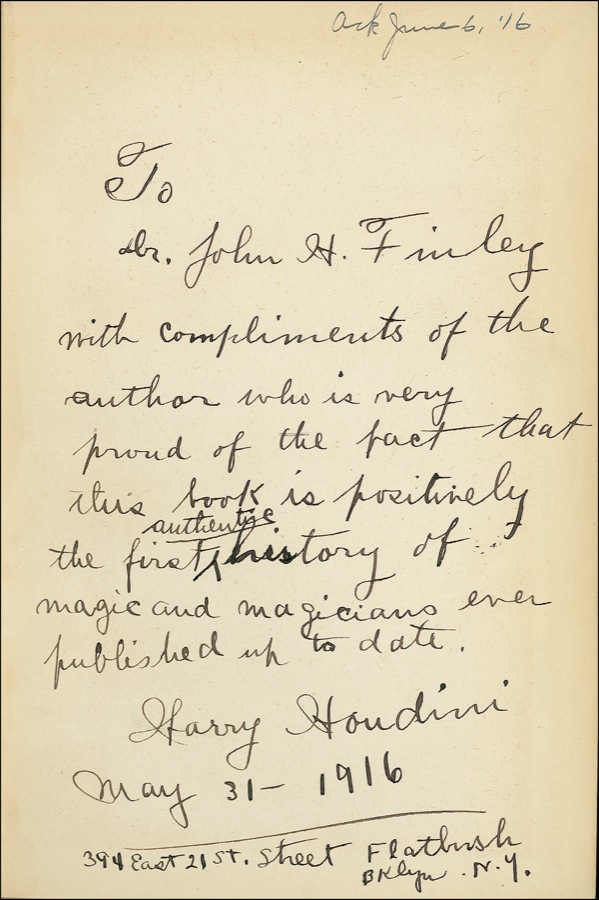 Ack June 6, '16
To
Dr. John H. Finley
with compliments of the
author who is very
proud of the fact that
this book is positively
authentic
the first history of
magic and magicians ever
published up to date.
Harry Houdini
May 31 – 1916
394 East 21 St. Street Flatbush
BKlyn . N.Y.